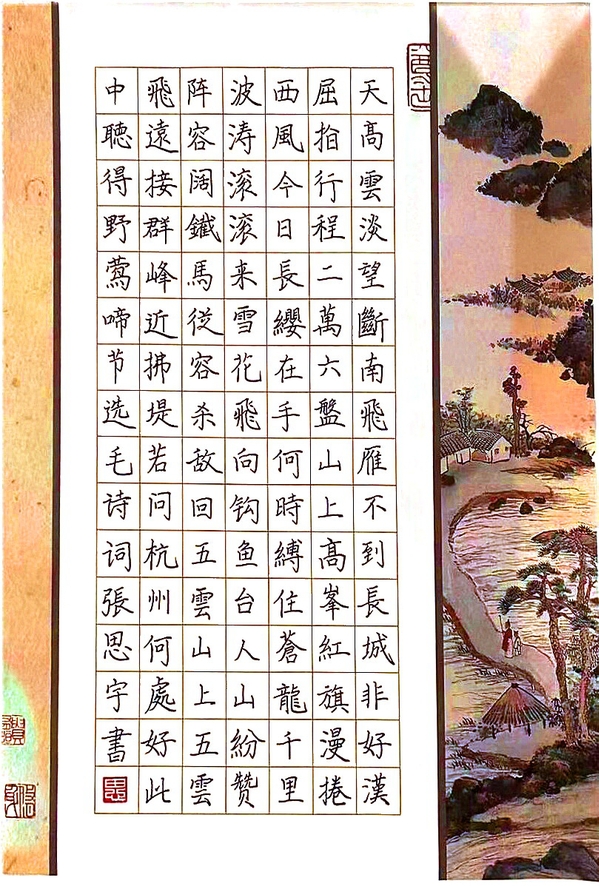 天髙雲淡望斷南飛雁不到長城非好漢
屈指行程二萬六盤山上髙峯紅旗漫捲
西風今日長纓在手何時縛住蒼龍千里
波涛滚滚来雪花飛向钓鱼台人山紛赞
阵容阔鐵馬從容杀敌回五雲山上五雲
飛遠接群峰近拂堤若问杭州何處好此
中聽得野鶯啼节选毛诗词張思宇書